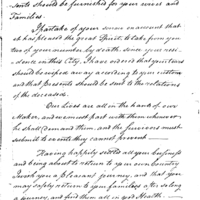 sents should be furnished for your wives and
Families.
I partake of your sorrow on account that
it has pleased the great Spirit to take from you
two of your number by death, since your resi-
dence in this City. I have ordered that your tears
should be wiped away according to your custom
and that presents should be sent to the relations
of the deceased.
Our Lives are all in the hands of our
Maker, and we must part with them whenever
he shall demand them; and the survivors must
submit to events they cannot prevent.
Having happily settled all your business
and being about to return to your own Country
I wish you a pleasant journey, and that you
may safely return to your families after so long
a journey, and find them all in good Health